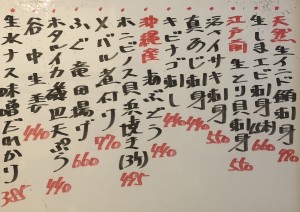 天然生イニ帆刺身 770
生しまエビ刺身(5本) 660
江戸前生とり貝刺身 550
活〆イサキ刺身 550
真あじ刺身 440
キビナゴ刺し 440
沖縄産海ぶどう
ホンビノス貝兵庫焼き(3ケ) 495
メバル煮付け 770
ふぐ竜田揚げ 660
ホタルイカ磯辺天ぷら 440
谷中生姜 440
生水ナス味噌だれかけ 385